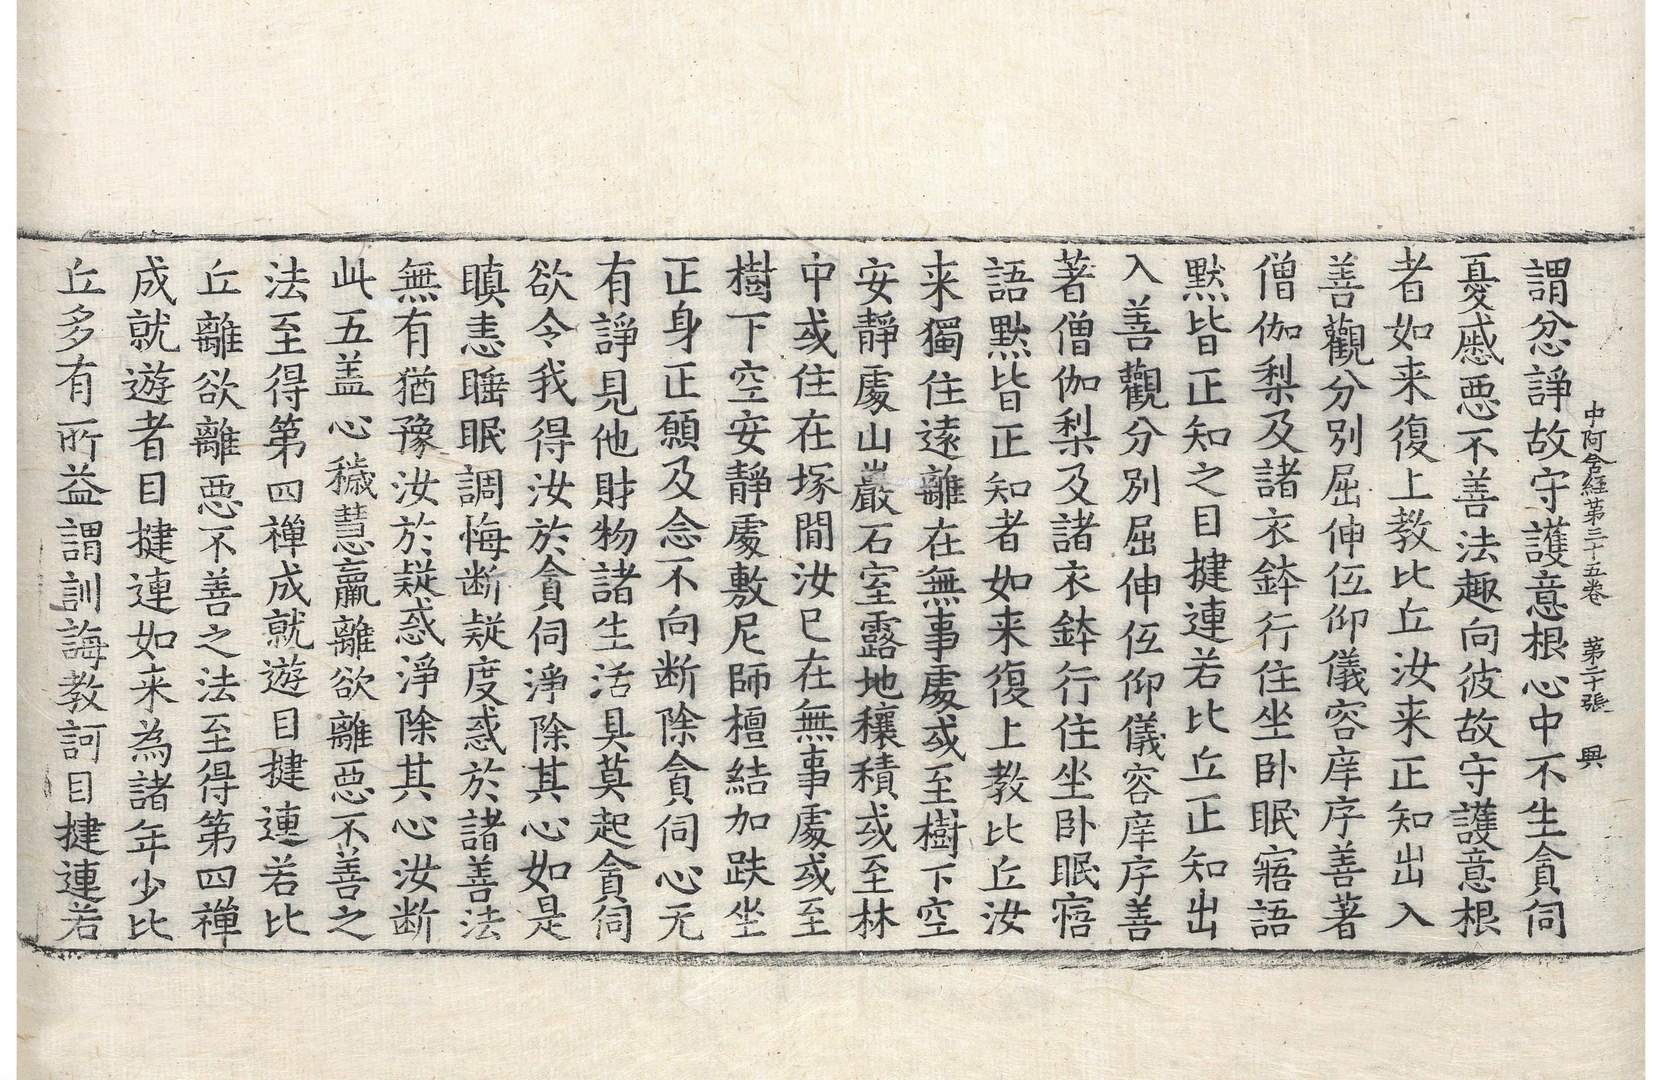 中阿含経第三十五卷　第二十張　興
謂忿諍故守護意根心中不生貪伺
憂慼惡不善法趣向彼故守護意根
者如来復上教比丘汝来正知出入
善觀分別屈伸伍仰儀容庠序善著
僧伽梨及諸衣鉢行住坐卧眠寤語
黙皆正知之目揵連若比丘正知出
入善觀分別屈伸伍仰儀容庠序善
著僧伽梨及諸衣鉢行住坐卧眠寤
語黙皆正知者如来復上教比丘汝
来獨住遠離在無事處或至樹下空
安靜處山巖石室露地穰積或至林
中或住在塚間汝已在無事處或至
樹下空安靜處敷尼師檀結加趺坐
正身正願及念不向断除貪伺心无
有諍見他財物諸生活具莫起貪伺
欲令我得汝於貪伺淨除其心如是
瞋恚睡眠調悔断疑度惑於諸善法
無有猶豫汝於疑惑淨除其心汝断
此五盖心穢慧羸離欲離惡不善之
法至得第四禪成就遊目揵連若比
丘離欲離惡不善之法至得第四禪
成就遊者目揵連如来為諸年少比
丘多有所益謂訓誨教訶目揵連若